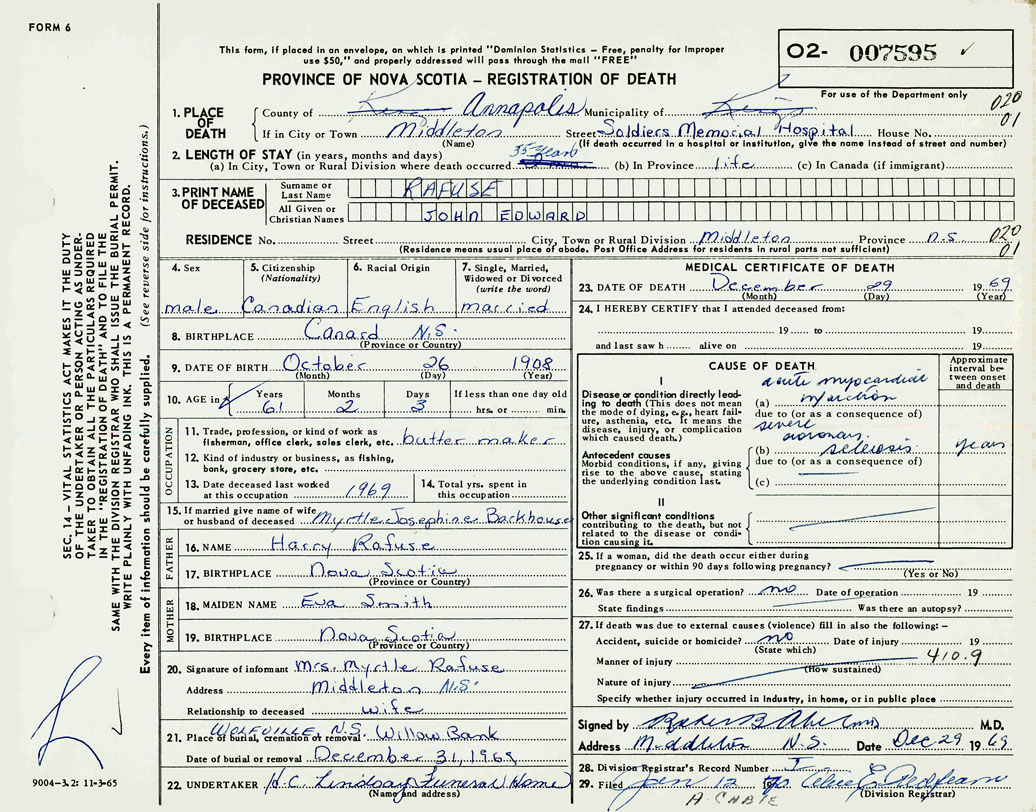 FORM 6
This form, if placed in an envelope, on which is printed "Dominion Statistics – Free, penalty for improper
use $50," and properly addressed will pass through the mail "FREE"
PROVINCE OF NOVA SCOTIA – REGISTRATION OF DEATH
O2- 007595
For use of the Department only
020
01
1. PLACE OF DEATH
County of Annapolis Municipality of Kings
If in City or Town Middleton Street Soldiers Memorial Hospital House No.
(Name) (If death occurred in a hospital or institution, give the name instead of street and number)
2. LENGTH OF STAY (in years, months and days) 35 years
(a) In City, Town or Rural Division where death occurred (b) In Province life (c) In Canada (if immigrant)
3. PRINT NAME OF DECEASED
Surname or Last Name RAFUSE
All Given or Christian Names JOHN EDWARD
RESIDENCE No. Street City, Town or Rural Division Middleton Province n.s. 020
(Residence means usual place of abode. Post Office Address for residents in rural parts not sufficient) 01
4. Sex 5. Citizenship (Nationality) 6. Racial Origin 7. Single, Married, Widowed or Divorced (write the word)
male Canadian English married
8. BIRTHPLACE Canard N.S.
(Province or Country)
9. DATE OF BIRTH October 26 1908
(Month) (Day) (Year)
10. AGE in Years Months Days If less than one day old
61 2 3 hrs. or min.
OCCUPATION
11. Trade, profession, or kind of work as
fisherman, office clerk, sales clerk, etc. butter maker
12. Kind of industry or business, as fishing,
bank, grocery store, etc.
13. Date deceased last worked
at this occupation 1969
14. Total yrs. spent in
this occupation
15. If married give name of wife
or husband of deceased Myrtle Josephine Backhouse
FATHER
16. NAME Harry Rafuse
17. BIRTHPLACE Nova Scotia
(Province or Country)
MOTHER
18. MAIDEN NAME Eva Smith
19. BIRTHPLACE Nova Scotia
(Province or Country)
20. Signature of informant Mrs. Myrtle Rafuse
Address Middleton N.S.
Relationship to deceased wife
21. Place of burial, cremation or removal WOLFVILLE, N.S. Willow Bank
Date of burial or removal December 31, 1969
22. UNDERTAKER H.C. Lindsay Funeral Home
(Name and address)
MEDICAL CERTIFICATE OF DEATH
23. DATE OF DEATH December 29 1969
(Month) (Day) (Year)
24. I HEREBY CERTIFY that I attended deceased from:
19 to 19
and last saw h alive on 19
CAUSE OF DEATH
Approximate interval between onset and death
I
Disease or condition directly leading to death (This does not mean the mode of dying, e.g., heart failure, asthenia, etc. It means the disease, injury, or complication which caused death.)
(a) acute myocardial
infarction
due to (or as a consequence of)
severe
coronary
Antecedent causes
Morbid conditions, if any, giving rise to the above cause, stating the underlying condition last.
(b) sclerosis years
due to (or as a consequence of)
(c)
II
Other significant conditions
contributing to the death, but not
related to the disease or condition causing it.
25. If a woman, did the death occur either during
pregnancy or within 90 days following pregnancy?
(Yes or No)
26. Was there a surgical operation? no Date of operation 19
State findings Was there an autopsy?
27. If death was due to external causes (violence) fill in also the following: –
Accident, suicide or homicide? no Date of injury 19
(State which)
Manner of injury 410.9
(How sustained)
Nature of injury
Specify whether injury occurred in industry, in home, or in public place
Signed by M.D.
Address Middleton N.S. Date Dec 29 1969
28. Division Registrar's Record Number
29. Filed Jan 12
(Division Registrar)
SEC. 14 – VITAL STATISTICS ACT MAKES IT THE DUTY
OF THE UNDERTAKER OR PERSON ACTING AS UNDER-
TAKER TO OBTAIN ALL THE PARTICULARS REQUIRED
IN THE "REGISTRATION OF DEATH" AND TO FILE THE
SAME WITH THE DIVISION REGISTRAR WHO SHALL ISSUE THE BURIAL PERMIT.
WRITE PLAINLY WITH UNFADING INK. THIS IS A PERMANENT RECORD.
Every item of information should be carefully supplied. (See reverse side for instructions.)
9004-3.2: 11-3-65